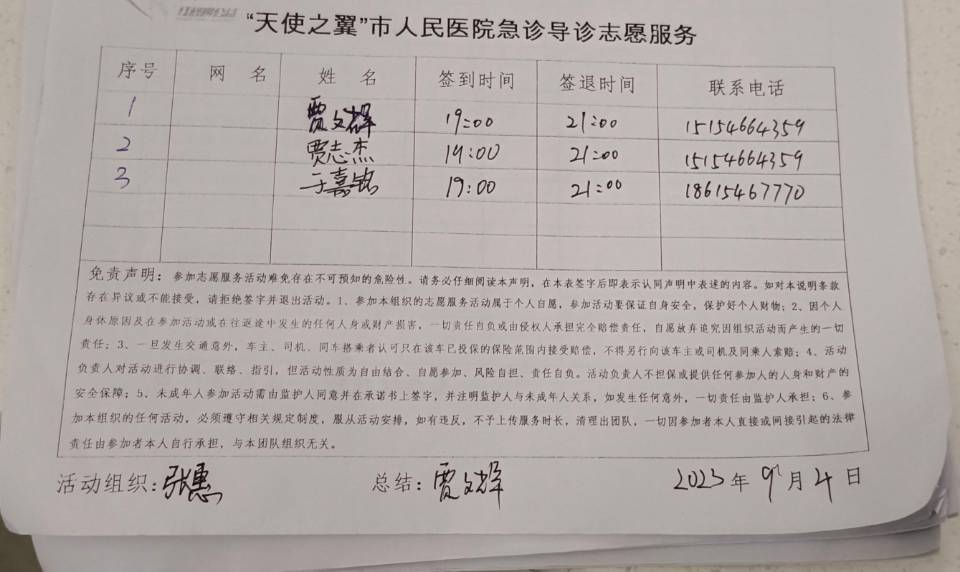 “天使之翼”市人民医院急诊导诊志愿服务
序号 网 名 姓 名 签到时间 签退时间 联系电话
1 贾文辉 19:00 21:00 15154664359
2 贾志杰 19:00 21:00 15154664359
3 于嘉铭 19:00 21:00 18615467770
免责声明：参加志愿服务活动难免存在不可预知的危险性。请务必仔细阅读本声明，在本表签字后即表示认同声明中表述的内容。如对本说明条款
存在异议或不能接受，请拒绝签字并退出活动。1、参加本组织的志愿服务活动属于个人自愿，参加活动要保证自身安全，保护好个人财物；2、因个人
身体原因及在参加活动或在往返途中发生的任何人身或财产损害，一切责任自负或由侵权人承担完全赔偿责任，自愿放弃追究因组织活动而产生的一切
责任；3、一旦发生交通意外，车主、司机、同车搭乘者认可只在该车已投保的保险范围内接受赔偿，不得另行向该车主或司机及同乘人索赔；4、活动
负责人对活动进行协调、联络、指引，但活动性质为自由结合、自愿参加、风险自担、责任自负。活动负责人不担保或提供任何参加人的人身和财产的
安全保障；5、未成年人参加活动需由监护人同意并在承诺书上签字，并注明监护人与未成年人关系，如发生任何意外，一切责任由监护人承担；6、参
加本组织的任何活动，必须遵守相关规定制度，服从活动安排，如有违反，不予上传服务时长，清理出团队，一切因参加者本人直接或间接引起的法律
责任由参加者本人自行承担，与本团队组织无关。
活动组织：张惠 总结：贾文辉 2023年9月4日